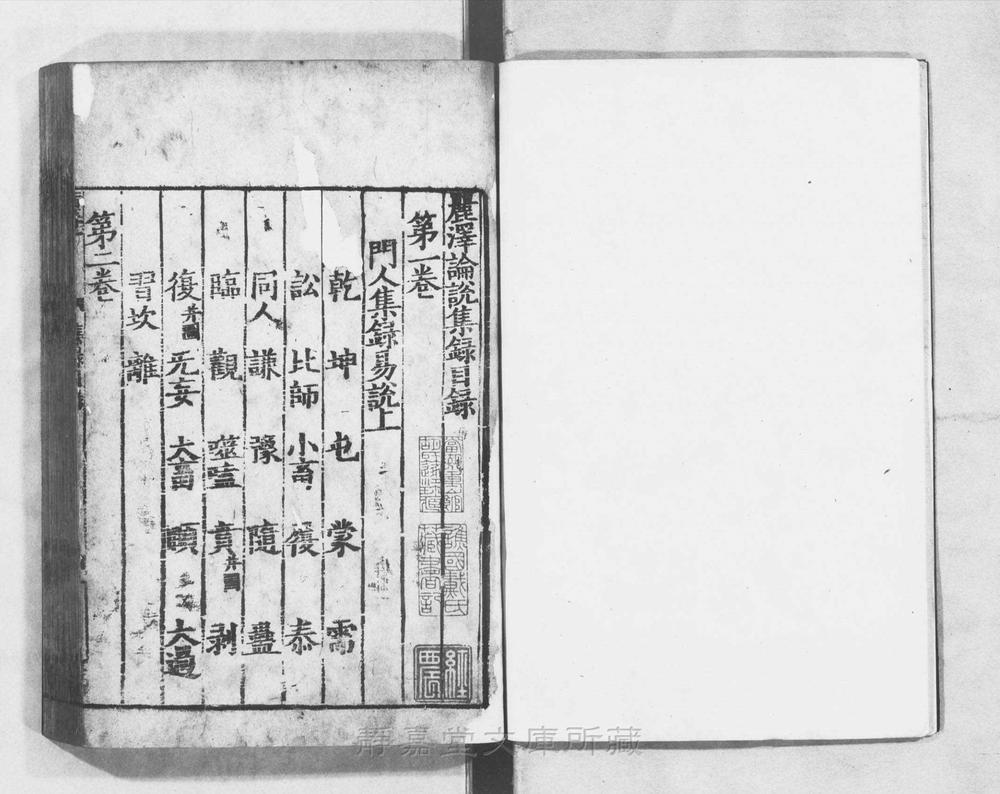 麗澤論說集錄目錄
第一卷
門人集錄易說上
乾 坤 屯 蒙 需
訟 比師 小畜 履 泰
同人 謙 豫 隨 蠱
臨 觀 噬嗑 賁并圖 剥
復并圖 无妄 大畜 頤 大過
習坎 離
第二卷
譙國戴氏
藏書記
經
靜嘉堂文庫所藏